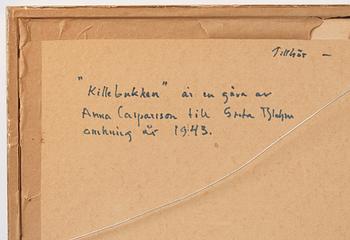 Tillhör —
"Killebukken" är en gåva av
Anna Casparsson till Greta
omkring år 1943.